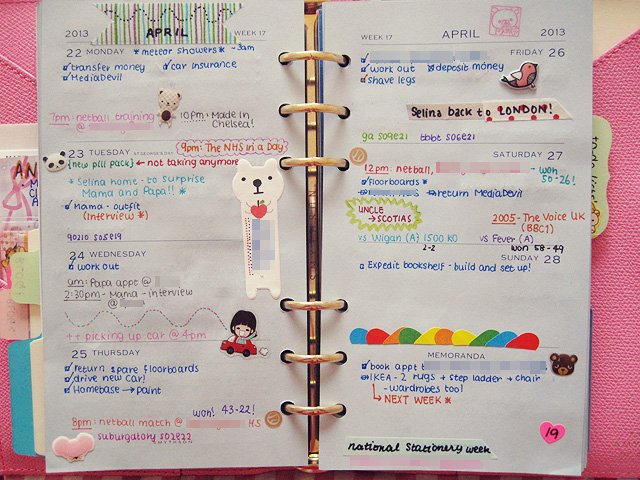 2013
APRIL
WEEK 17
22 MONDAY * meteor showers * ~3am
transfer money
car insurance
MediaDevil
7pm: netball training
@
10pm: Made in
Chelsea!
23 TUESDAY
9pm: The NHS in a Day
{new pill pack} ← not taking anymore
* Selina home - to surprise
Mama and Papa!! *
Mama - outfit
(interview *)
90210 S05E19
24 WEDNESDAY
work out
am: Papa appt @
2:30pm - Mama - interview
@
++ picking up car @ 4pm
25 THURSDAY
return spare floorboards
drive new car!
Homebase → paint
won! 43-22!
8pm: netball match @ HS
suburgatory S02E22
WEEK 17
APRIL
2013
FRIDAY 26
work out
deposit money
shave legs
Selina back to LONDON!
ga S09E21
tbbt S06E21
SATURDAY 27
12pm: netball, - won
50-26!
floorboards *
return MediaDevil
UNCLE
→ SCOTIAS
2005 - The Voice UK
(BBC1)
vs Wigan (A) 1500 KO
2-2
vs Fever (A)
won 58-49
SUNDAY 28
Expedit bookshelf - build and set up!
MEMORANDA
book appt t
IKEA - 2 rugs + step ladder + chair
- wardrobes too!
→ NEXT WEEK *
19
national Stationery week
to do lists!